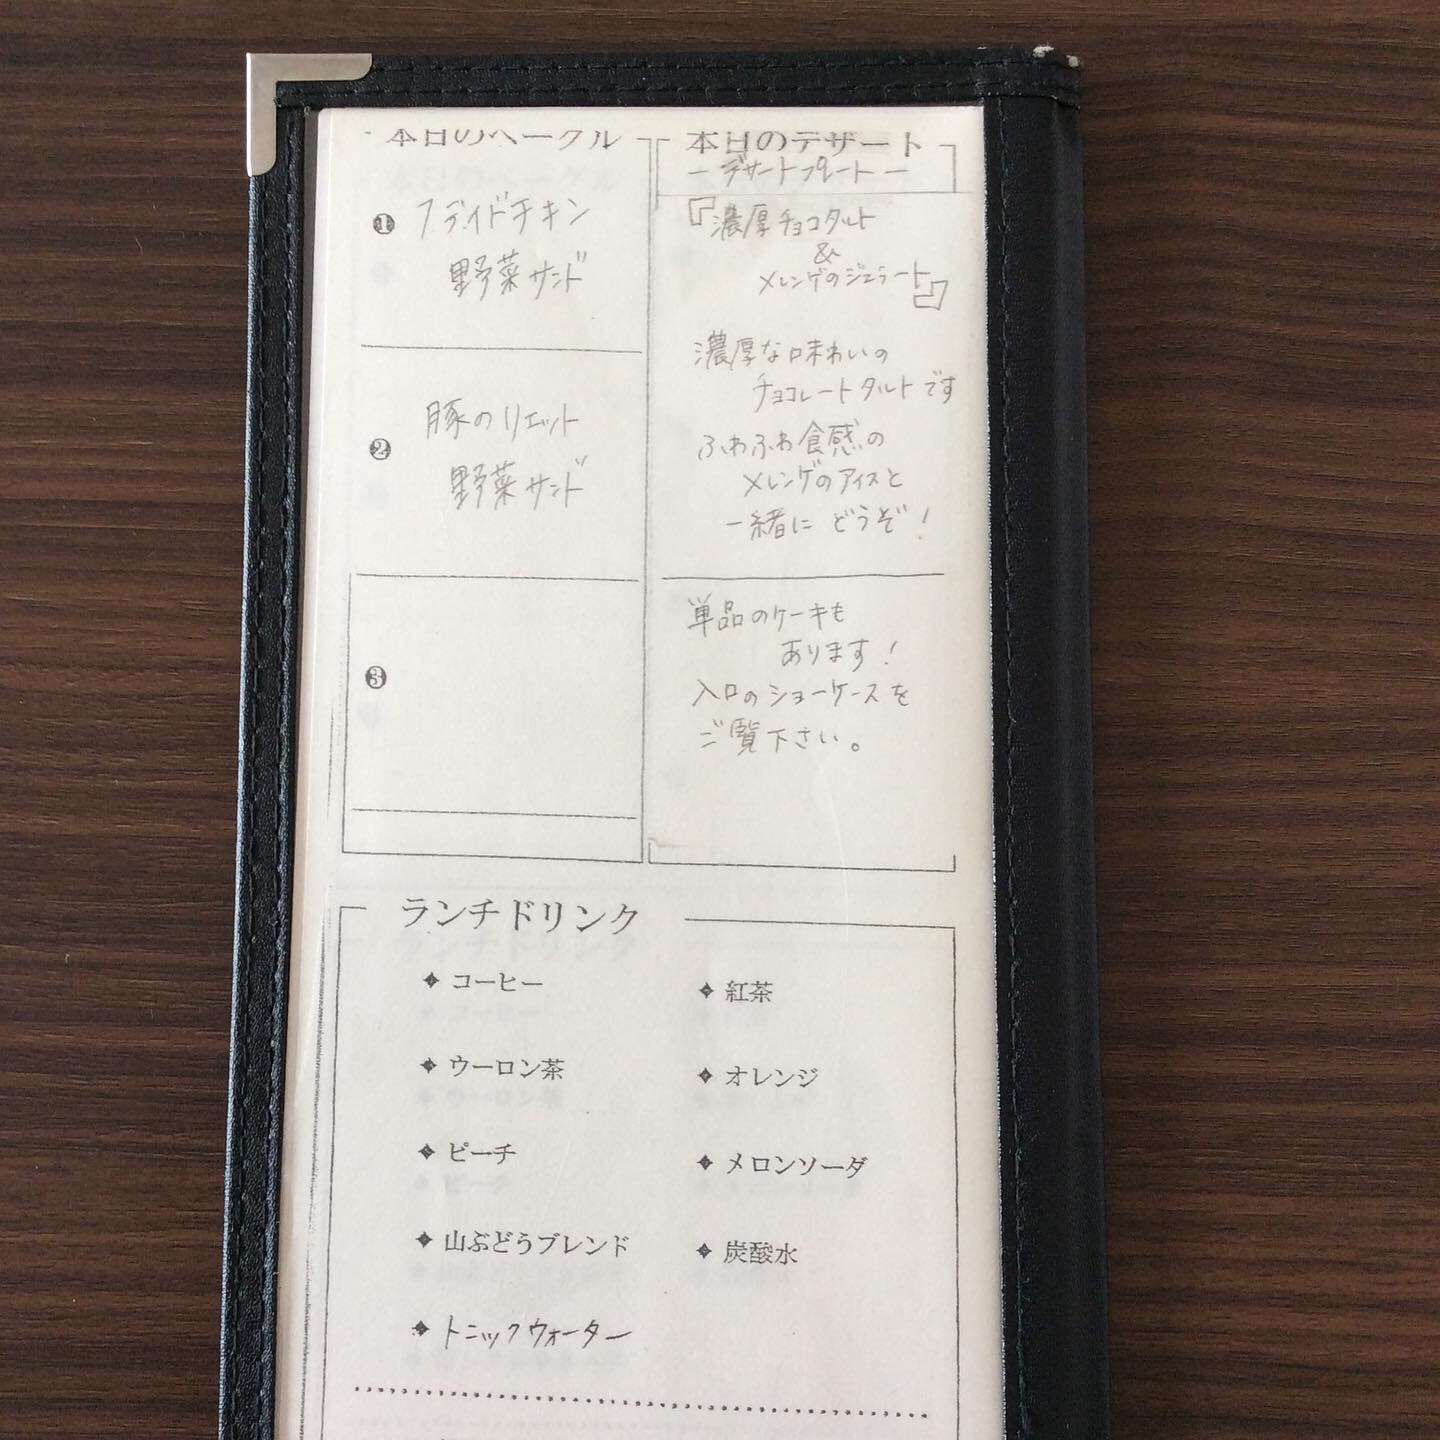 本日のベーグル
❶ フライドチキン
野菜サンド
❷ 豚のリエット
野菜サンド
❸
本日のデザート
ーデザートプレートー
『濃厚チョコタルト
&
メレンゲのジェラート』
濃厚な味わいの
チョコレートタルトです
ふわふわ食感の
メレンゲのアイスと
一緒にどうぞ！
単品のケーキも
あります！
入口のショーケースを
ご覧下さい。
ランチドリンク
コーヒー
紅茶
ウーロン茶
オレンジ
ピーチ
メロンソーダ
山ぶどうブレンド
炭酸水
トニックウォーター